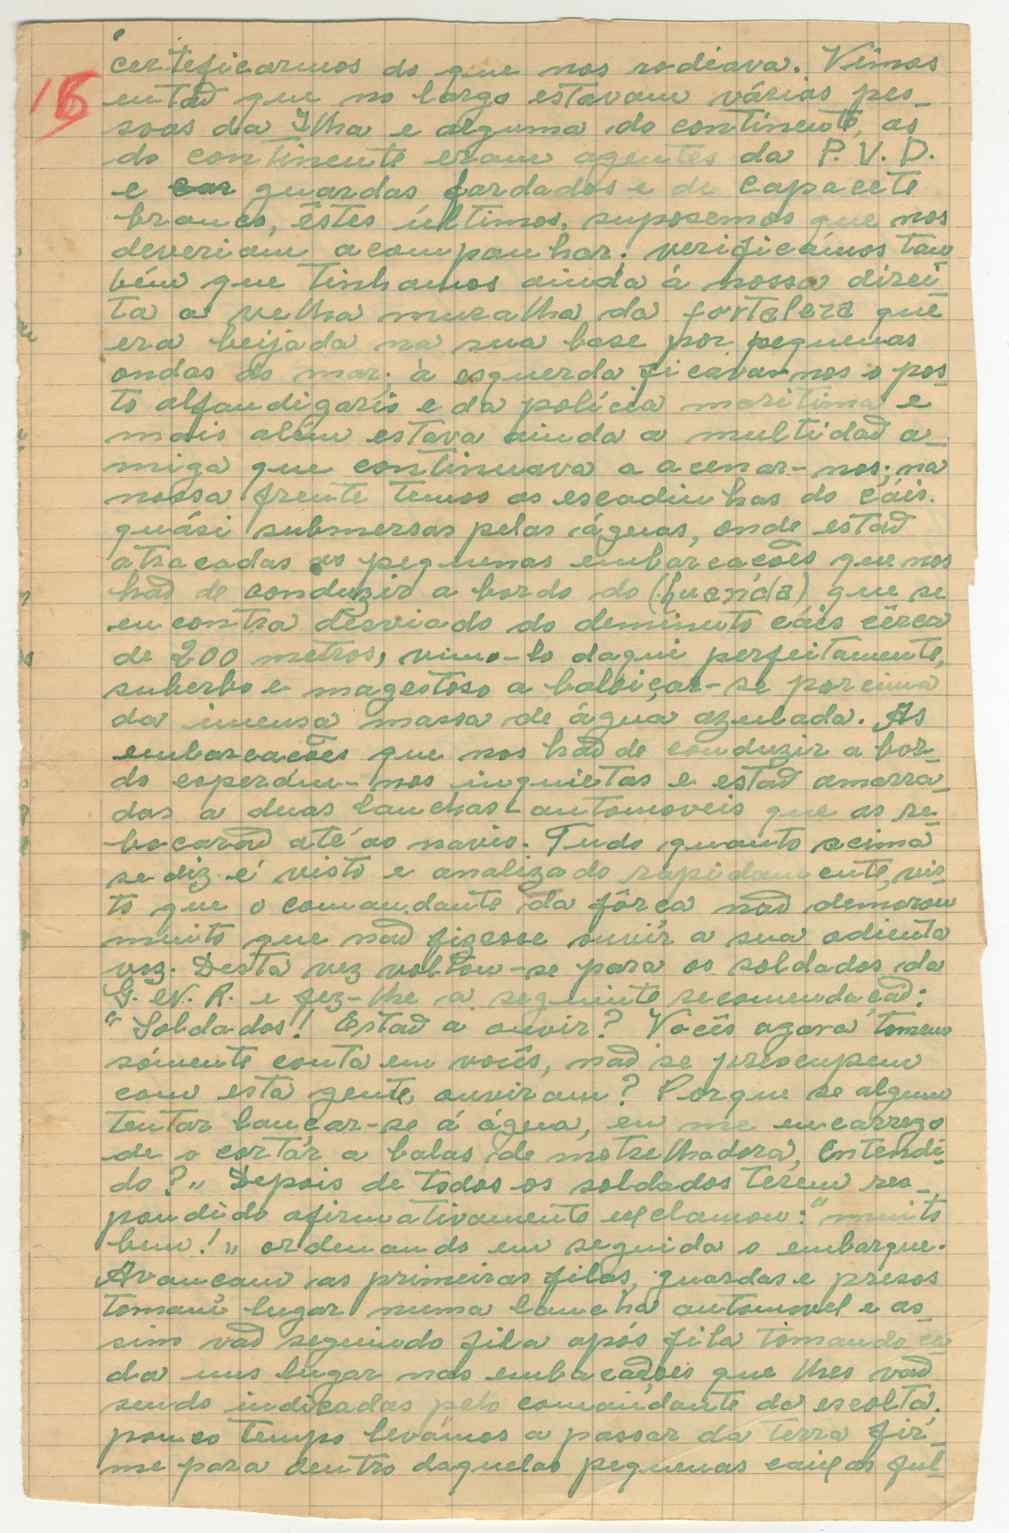 16
certeficarmos do que nos rodeava. Vimos
entaõ que no largo estavam vários pes-
soas da Ilha e alguma do continente, as
do continente eram agentes da P. V. D.
e guardas fardados e de capacete
branco, êstes últimos, suposemos que nos
deveriam acompanhar; verificámos tam
bém que tinhamos ainda á nossa direi-
ta a velha muralha da fortaleza que
era beijada na sua base por pequenas
ondas do mar; á esquerda ficavam-nos o pos-
to alfandigario e da polícia maritima e
mais além estava ainda a multidaõ a-
miga que continuava a acenar-nos; na
nossa frente temos as escadinhas do cáis.
quási submersas pelas águas, onde estaõ
atracadas as pequenas embarcacões que nos
haõ de conduzir a bordo do (Luanda) que se
encontra desviado do deminuto cáis cêrca
de 200 metros, vimo-lo daqui perfeitamente,
suberbo e magestoso a baloiçar-se por cima
da imensa massa de água azulada. As
embarcacões que nos haõ de conduzir a bor-
do esperam-nos inquietas e estaõ amarra-
das a duas lanchas-automoveis que as re-
bocaraõ até ao navio. Tudo quanto acima
se diz é visto e analizado rapidamente, vis-
to que o comandante da fôrca naõ demorou
muito que naõ fizesse ouvir a sua odienta
voz. Desta vez voltou-se para os soldados da
G. N. R. e fez-lhe a seguinte recomendacaõ:
"Soldados! Estaõ a ouvir? Vocês agora tomem
sómente conta em vocês, naõ se preocupem
com esta gente, ouviram? Porque se algum
tentar lancar-se á água, eu me encarrego
de o cortár a balas de metrelhadora, Entendi-
do?" Depois de todos os soldados terem res-
pondido afirmativamente exclamou: "muito
bem!" ordenando em seguida o embarque.
Avancam as primeiras filas, guardas e presos
tomam lugar numa lancha automovel e as-
sim vaõ seguindo fila após fila tomando ca-
da uns lugar nas embacações que lhes vaõ
sendo indicadas pelo comandante da escolta.
pouco tempo levámos a passar da terra fir-
me para dentro daquelas pequenas caixas ful-